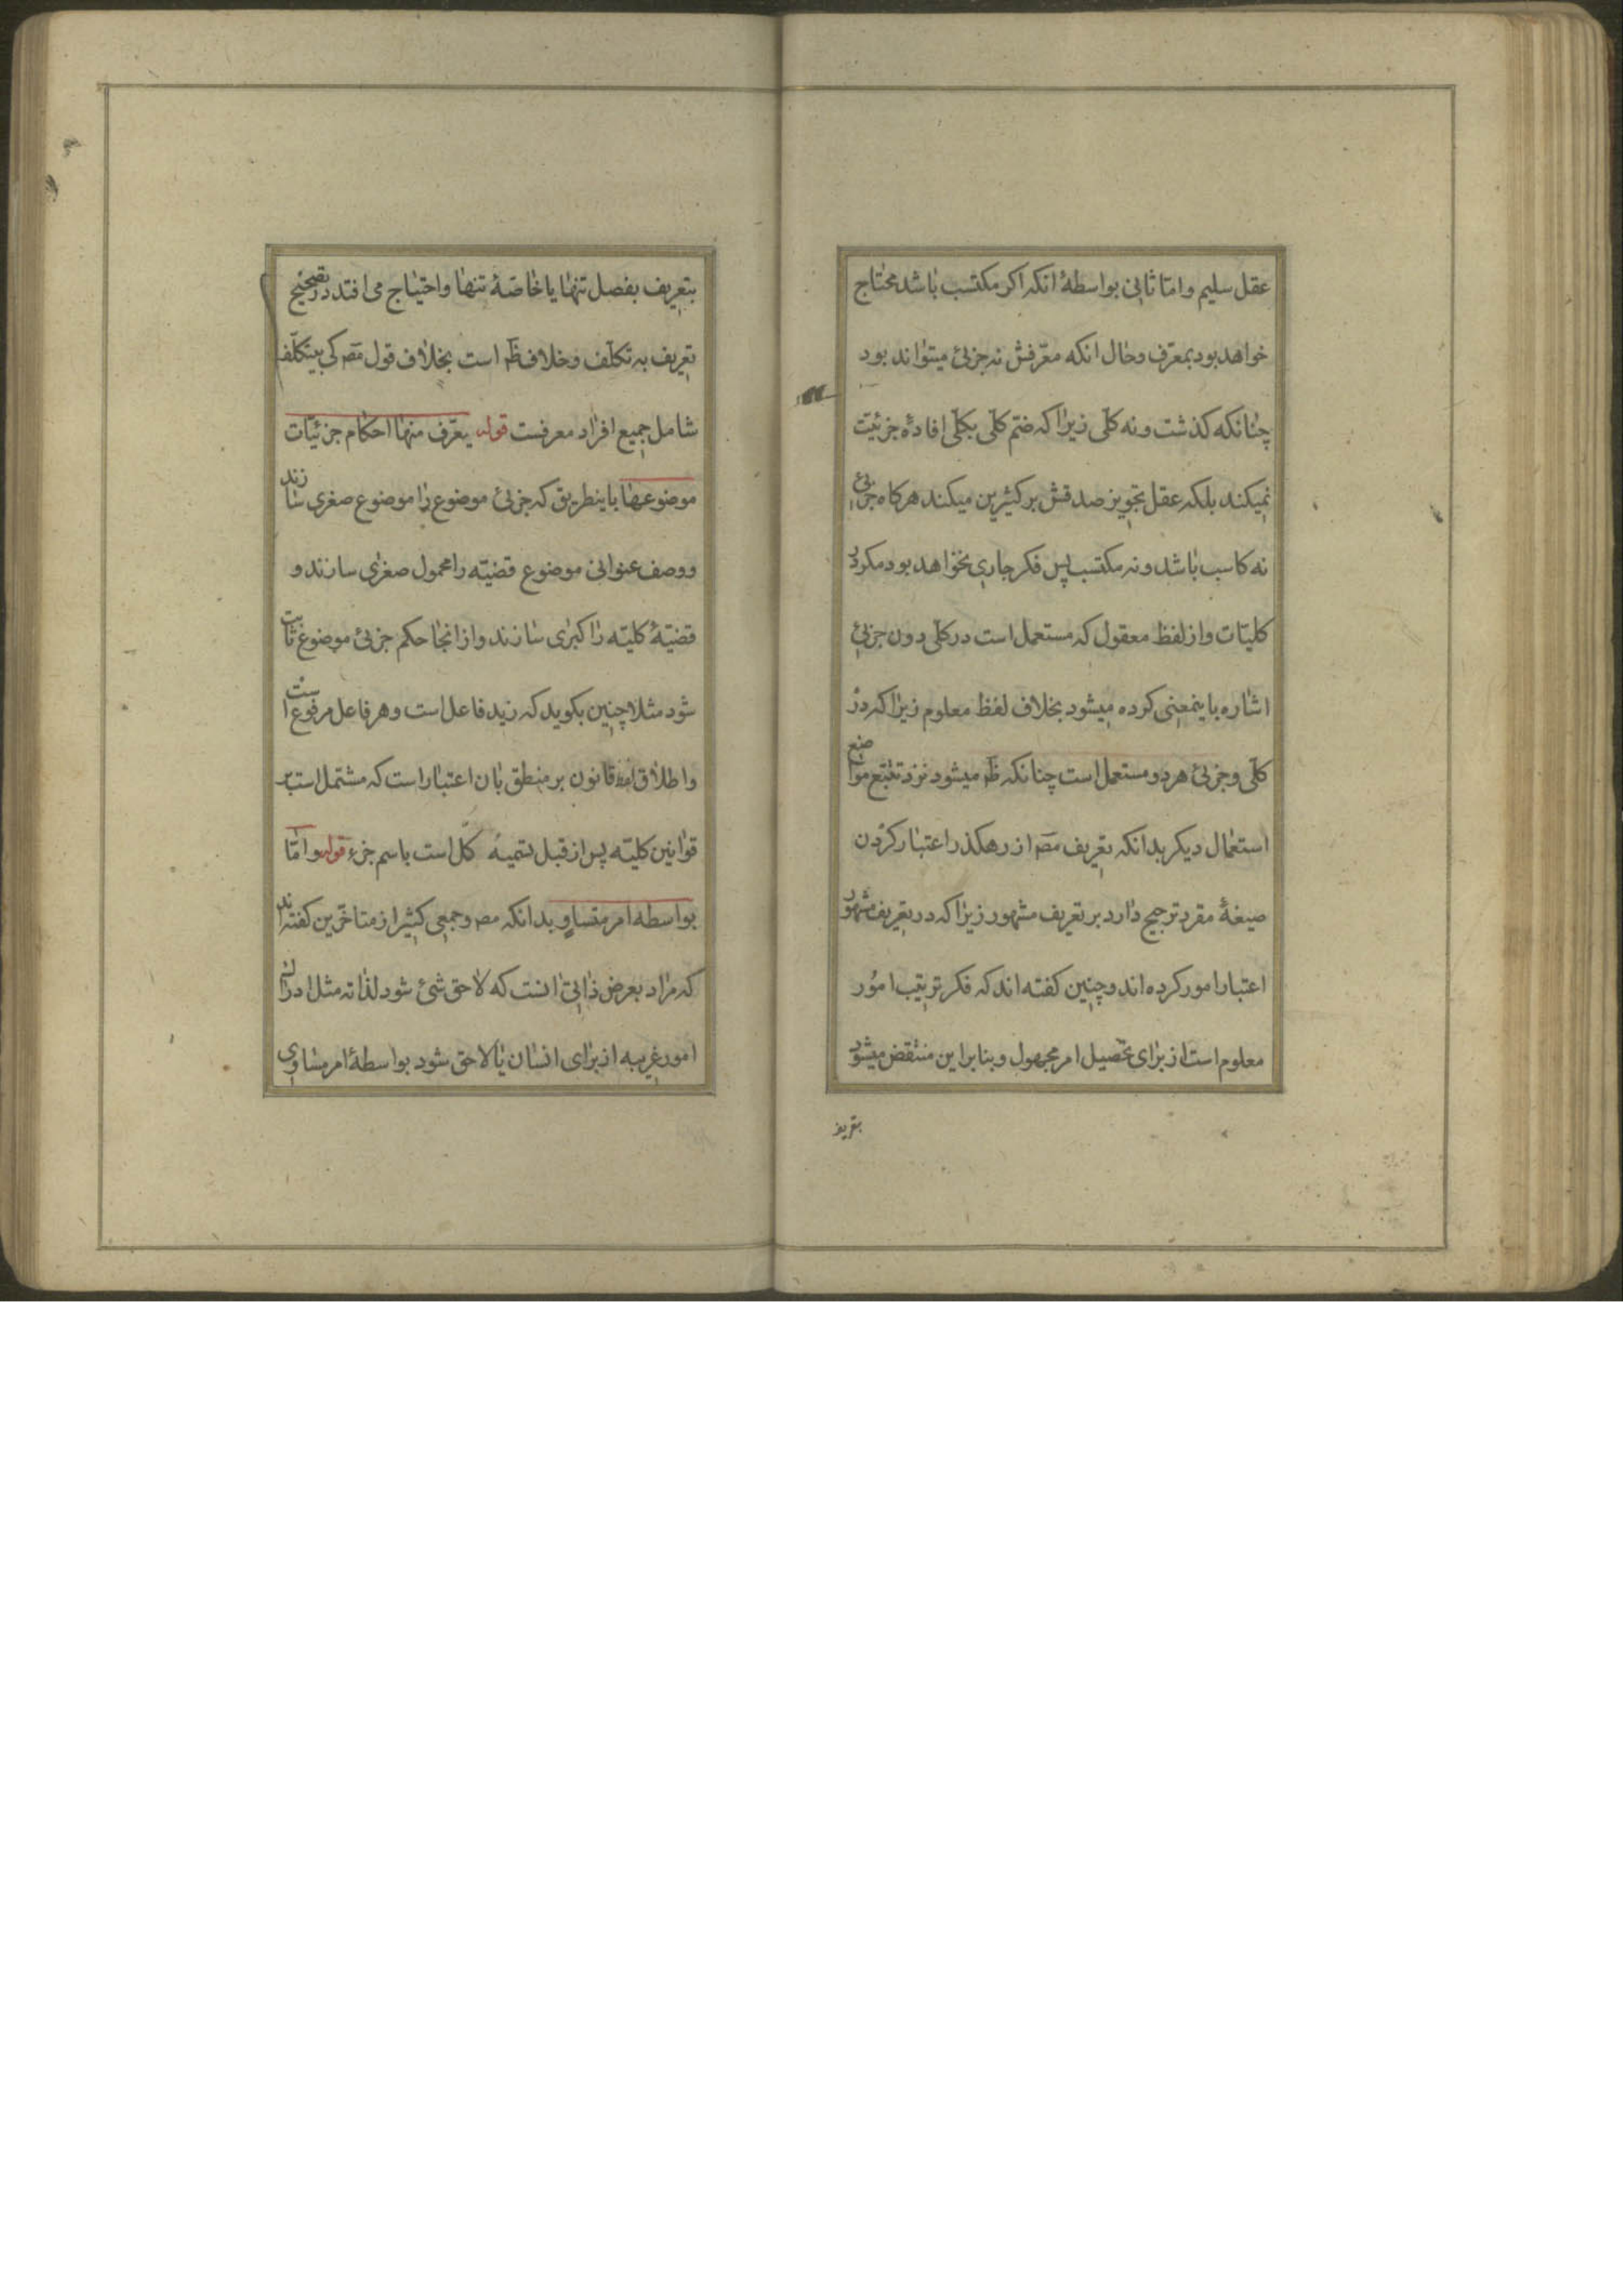 عقل سلیم و امّا ثانی بواسطهٔ انکه اکر مکتسب باشد محتاج
خواهد بود بمعرّف و حال انکه معرّفش نه جزئی میتواند بود
چنانکه کذشت و نه کلّی زیرا که ضمّ کلّی بکلّی افادهٔ جزئیّت
نمیکند بلکه عقل تجویز صدقش بر کثیرین میکند هرکاه جزئی
نه کاسب باشد و نه مکتسب پس فکر جاری نخواهد بود مکر در
کلیّات و از لفظ معقول که مستعمل است در کلّی دون جزئی
اشاره باینمعنی کرده میشود بخلاف لفظ معلوم زیرا که در
کلّی و جزئی هر دو مستعمل است چنانکه ظ میشود نزد تتبّع مواضع
استعمال دیکر بدانکه تعریف مص از رهکذر اعتبار کردن
صیغهٔ مفرد ترجیح دارد بر تعریف مشهور زیرا که در تعریف مشهور
اعتبار امور کرده اند و چنین کفته اند که فکر ترتیب امور
معلوم است از برای تحصیل امر مجهول و بنا براین منتقض میشود
بتعریف
بتعریف بفصل تنها یا خاصّهٔ تنها و احتیاج می افتد در تصحیح
تعریف به تکلّف و خلاف ظ است بخلاف قول مص کی بیتکلّف
شامل جمیع افراد معرفست قوله یعرّف منها احکام جزئیّات
موضوعها باینطریق که جزئی موضوع را موضوع صغری سازند
و وصف عنوانی موضوع قضیّه را محمول صغری سازند و
قضیّهٔ کلیّه را کبرٰی سازند و از انجا حکم جزئی موضوع ثابت
شود مثلا چنین بکوید که زید فاعل است و هر فاعل مرفوع است
و اطلاق لفظ قانون بر منطق بان اعتبار است که مشتمل است بر
قوانین کلیّه پس از قبل تسمیهٔ کل است باسم جزء قوله و امّا
بواسطه امر متساو بدانکه مص و جمعی کثیر از متاخّرین کفته اند
که مراد بعرض ذاتی انست که لاحق شئ شود لذاته مثل ادراک
امور غریبه از برای انسان یا لاحق شود بواسطهٔ امر مساوی